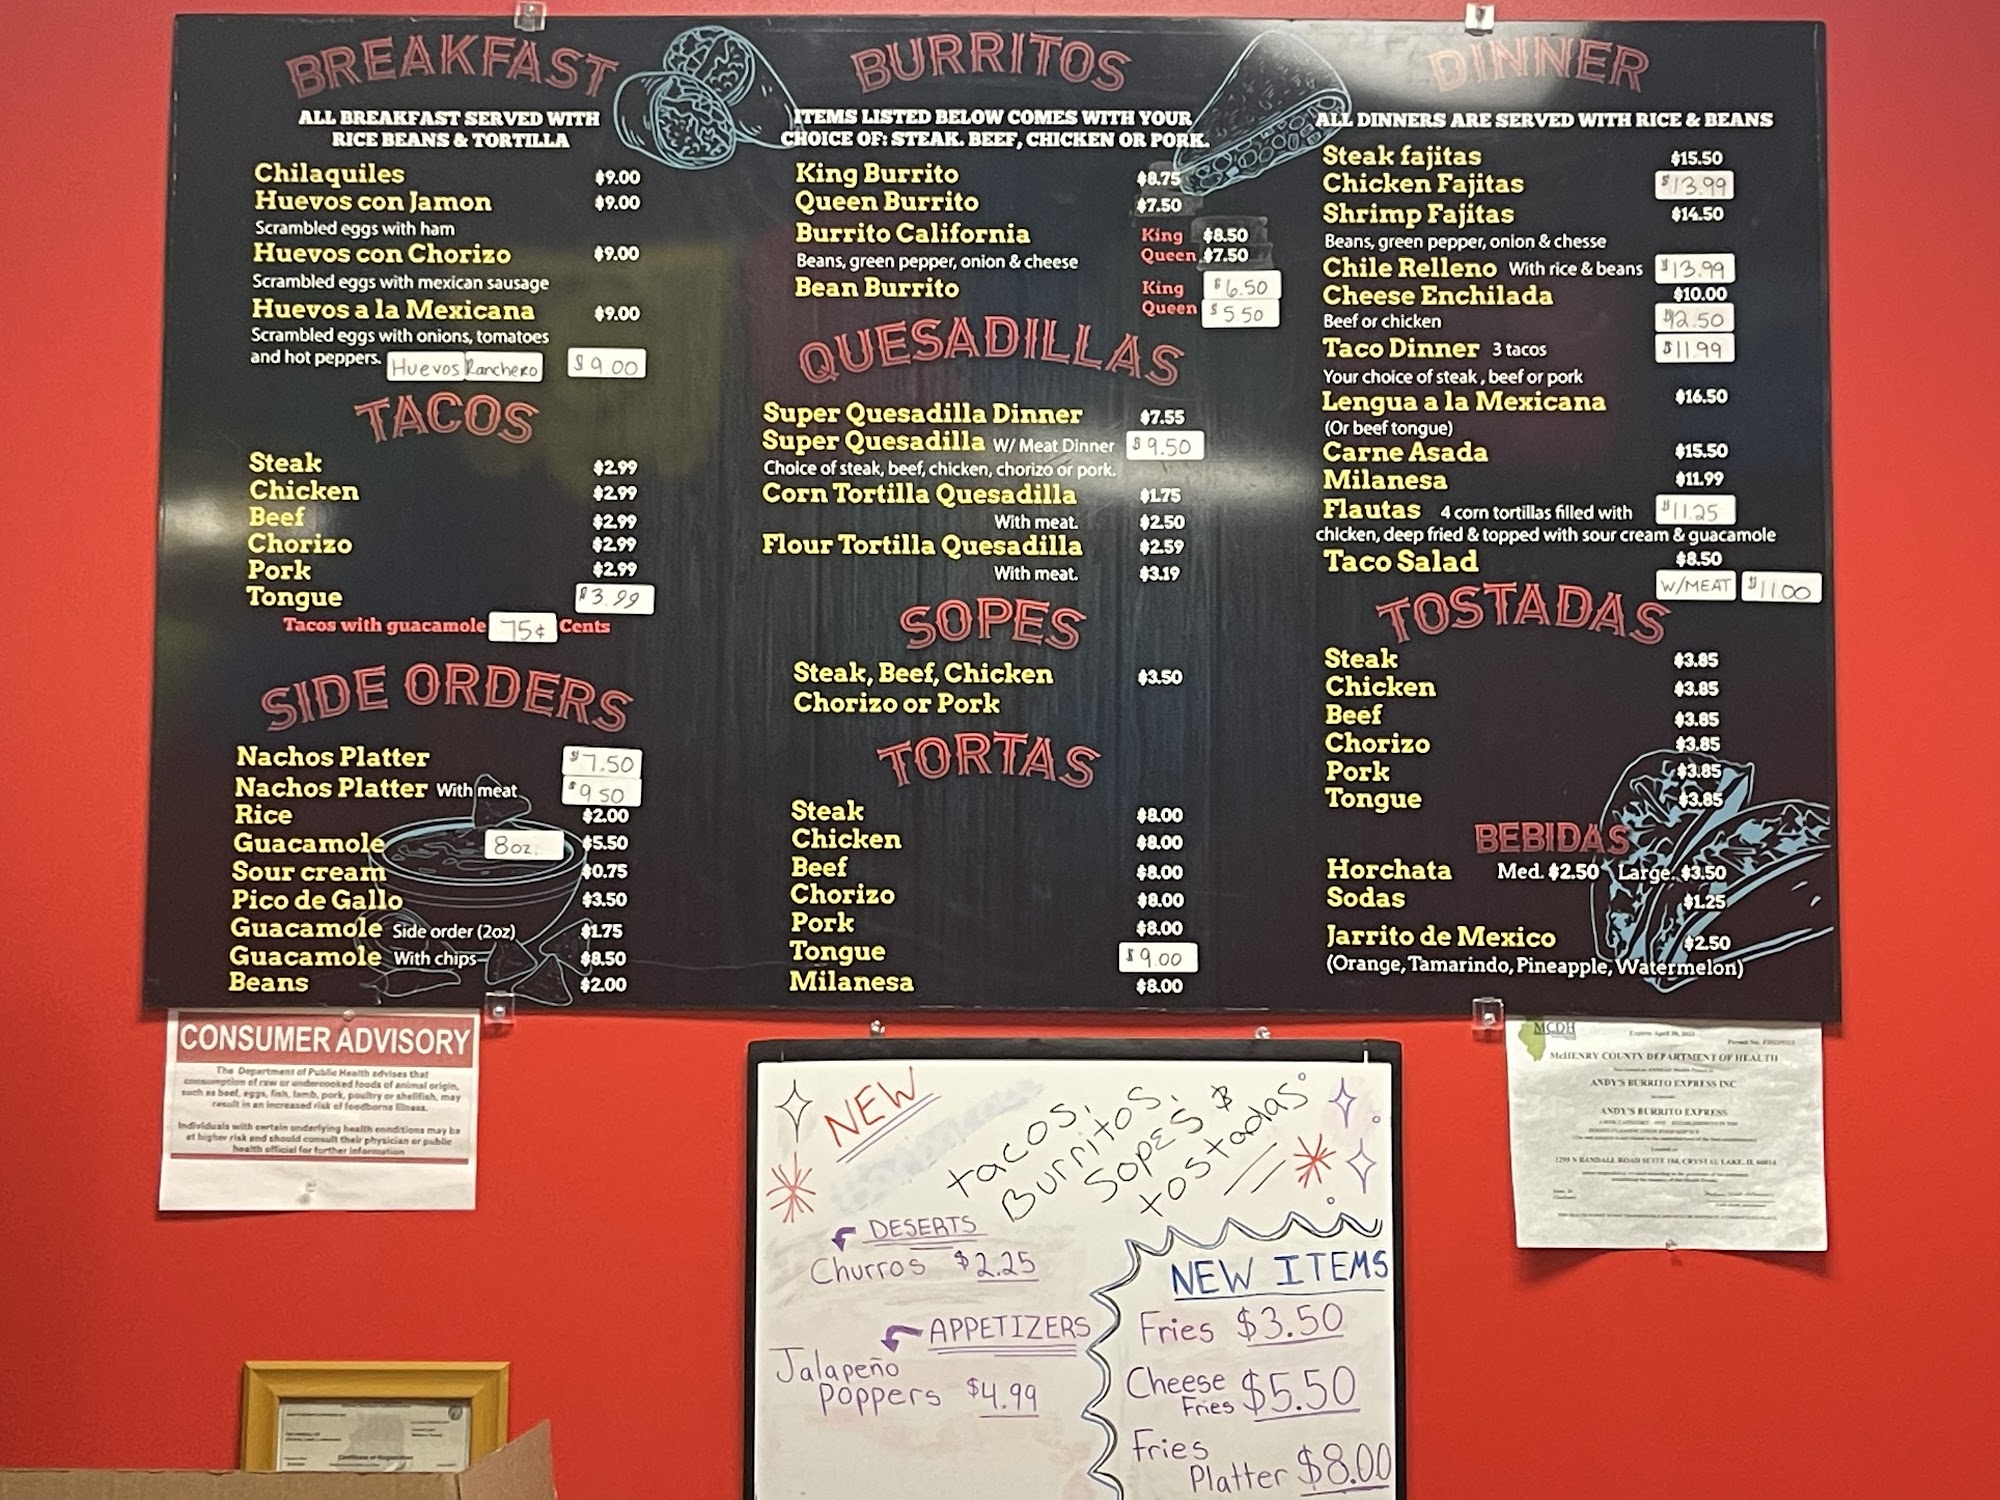 BREAKFAST
ALL BREAKFAST SERVED WITH
RICE BEANS & TORTILLA
Chilaquiles $9.00
Huevos con Jamon $9.00
Scrambled eggs with ham
Huevos con Chorizo $9.00
Scrambled eggs with mexican sausage
Huevos a la Mexicana $9.00
Scrambled eggs with onions, tomatoes
and hot peppers. Huevos Ranchero $9.00
TACOS
Steak $2.99
Chicken $2.99
Beef $2.99
Chorizo $2.99
Pork $2.99
Tongue $3.99
Tacos with guacamole 75¢ Cents
SIDE ORDERS
Nachos Platter $7.50
Nachos Platter With meat $9.50
Rice $2.00
Guacamole 8oz. $5.50
Sour cream $0.75
Pico de Gallo $3.50
Guacamole Side order (2oz) $1.75
Guacamole With chips $8.50
Beans $2.00
BURRITOS
ITEMS LISTED BELOW COMES WITH YOUR
CHOICE OF: STEAK. BEEF, CHICKEN OR PORK.
King Burrito $8.75
Queen Burrito $7.50
Burrito California King $8.50
Queen $7.50
Beans, green pepper, onion & cheese
Bean Burrito King $6.50
Queen $5.50
QUESADILLAS
Super Quesadilla Dinner $7.55
Super Quesadilla W/ Meat Dinner $9.50
Choice of steak, beef, chicken, chorizo or pork.
Corn Tortilla Quesadilla $1.75
With meat. $2.50
Flour Tortilla Quesadilla $2.59
With meat. $3.19
SOPES
Steak, Beef, Chicken $3.50
Chorizo or Pork
TORTAS
Steak $8.00
Chicken $8.00
Beef $8.00
Chorizo $8.00
Pork $8.00
Tongue $9.00
Milanesa $8.00
DINNER
ALL DINNERS ARE SERVED WITH RICE & BEANS
Steak fajitas $15.50
Chicken Fajitas $13.99
Shrimp Fajitas $14.50
Beans, green pepper, onion & chesse
Chile Relleno With rice & beans $13.99
Cheese Enchilada $10.00
Beef or chicken $12.50
Taco Dinner 3 tacos $11.99
Your choice of steak , beef or pork
Lengua a la Mexicana $16.50
(Or beef tongue)
Carne Asada $15.50
Milanesa $11.99
Flautas 4 corn tortillas filled with $11.25
chicken, deep fried & topped with sour cream & guacamole
Taco Salad $8.50
W/MEAT $11.00
TOSTADAS
Steak $3.85
Chicken $3.85
Beef $3.85
Chorizo $3.85
Pork $3.85
Tongue $3.85
BEBIDAS
Horchata Med. $2.50 Large. $3.50
Sodas $1.25
Jarrito de Mexico $2.50
(Orange, Tamarindo, Pineapple, Watermelon)
CONSUMER ADVISORY
The Department of Public Health advises that
consumption of raw or undercooked foods of animal origin,
such as beef, eggs, fish, lamb, pork, poultry or shellfish, may
result in an increased risk of foodborne illness.
Individuals with certain underlying health conditions may be
at higher risk and should consult their physician or public
health official for further information
NEW
tacos,
Burritos,
Sopes &
tostadas
DESERTS
Churros $2.25
APPETIZERS
Jalapeño
Poppers $4.99
NEW ITEMS
Fries $3.50
Cheese
Fries $5.50
Fries
Platter $8.00
MCDH
McHENRY COUNTY DEPARTMENT OF HEALTH
ANDY'S BURRITO EXPRESS INC
ANDY'S BURRITO EXPRESS
1295 N RANDALL ROAD SUITE 104, CRYSTAL LAKE, IL 60014